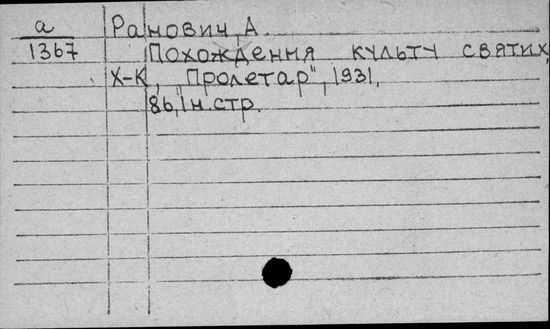 а
1367
Ранович, А.
Похождення культу святих,
Х-К, "Пролетар", 1931.
86, 1 н.стр.